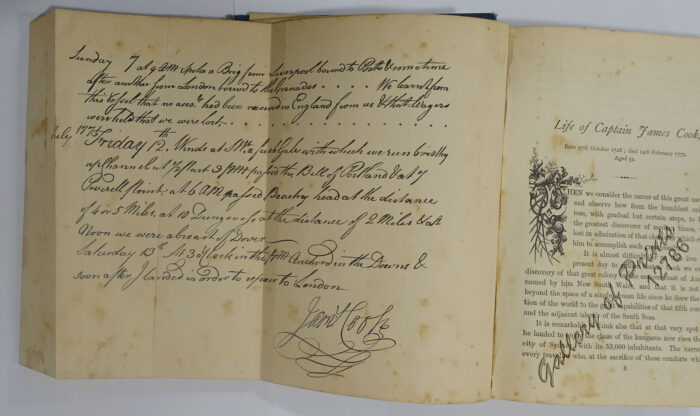 Sunday 7 at 9 AM spoke a Brig from Liverpool bound to Porto & sometime
after another from London bound to the Granades . . . . We learnt from
this Vessel that no acct. had been received in England from us & that wagers
were held that we were lost. . . . . . . . . . . . . . . .
July 1771
Friday 12.th Winds at SW. a fresh Gale with which we run briskly
up Channel at 1/2 past 3 PM passed the Bill of Portland & at 7
Peverell Point, at 6 AM passed Beachy head at the distance
of 4 or 5 Miles, at 10 Dungeness at the distance of 2 Miles & at
Noon we were abreast of Dover
Saturday 13th. At 3 o'Clock in the PM Anchord in the Downs &
soon after I landed in order to repair to London
Jams Cook
Life of Captain James Cook,
Born 27th October 1728; died 14th February 1779.
Aged 51.
WHEN we consider the career of this great
and observe how from the humblest
rose, with gradual but certain steps, to
the greatest discoverer of modern times,
lost in admiration of that
him to accomplish such
It is almost difficult live
present day to
discovery of that great colony coast of
named by him New South Wales, and that it is not
beyond the space of a single life since he drew the
tion of the world to the capabilities of that fifth
and the adjacent of the South Seas.
It is remarkable to think also that at that very spot
he landed to the chase of the kangaroo now rises the
city of with its 53,000 inhabitants. The
every who, at the sacrifice of those comforts
B
Gallery of Prints
12786